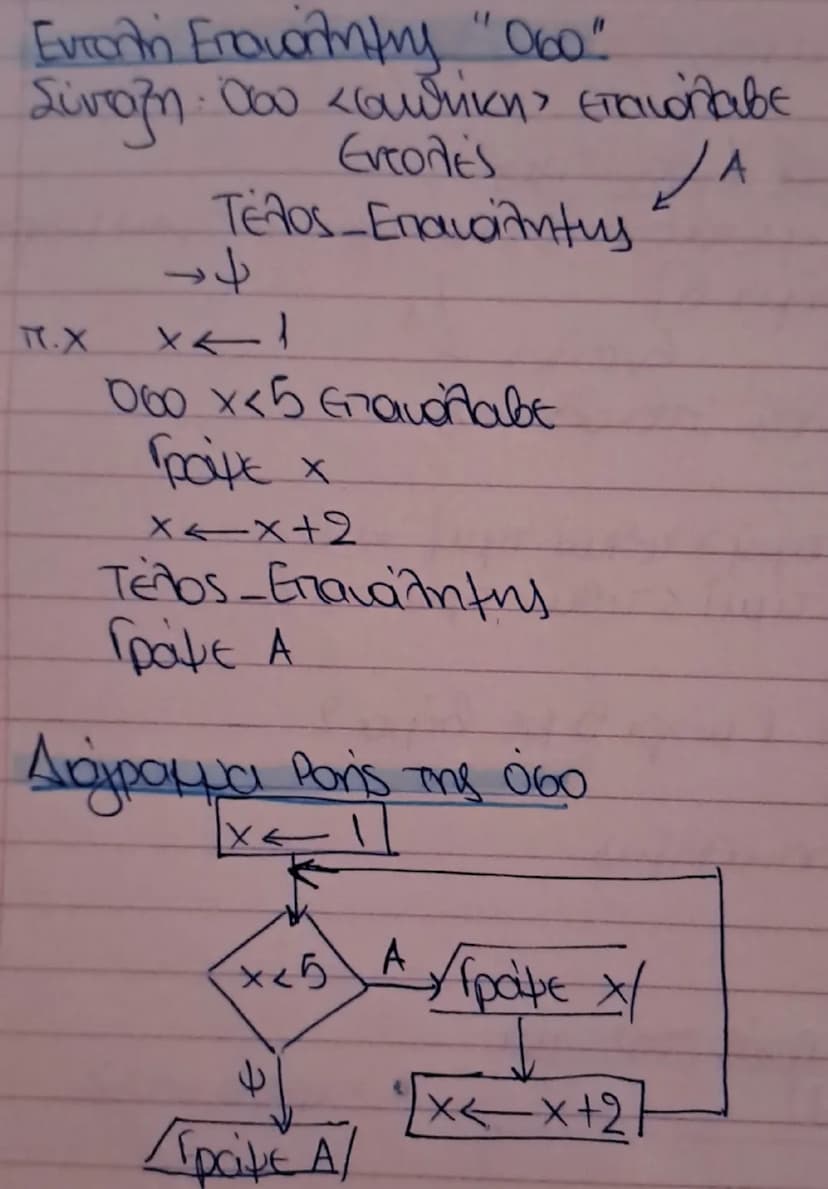 Εντολή Επανάληψης "Όσο"
Σύνταξη: Όσο <συνθήκη> επανάλαβε
Εντολές
A
Τέλος_Επανάληψης
→ψ
π.χ x ← 1
Όσο x<5 Επανάλαβε
Γράψε x
x ← x+2
Τέλος_Επανάληψης
Γράψε A
Διάγραμμα Ροής της όσο
x ← 1
x<5
A
Γράψε x
ψ
x ← x+2
Γράψε A